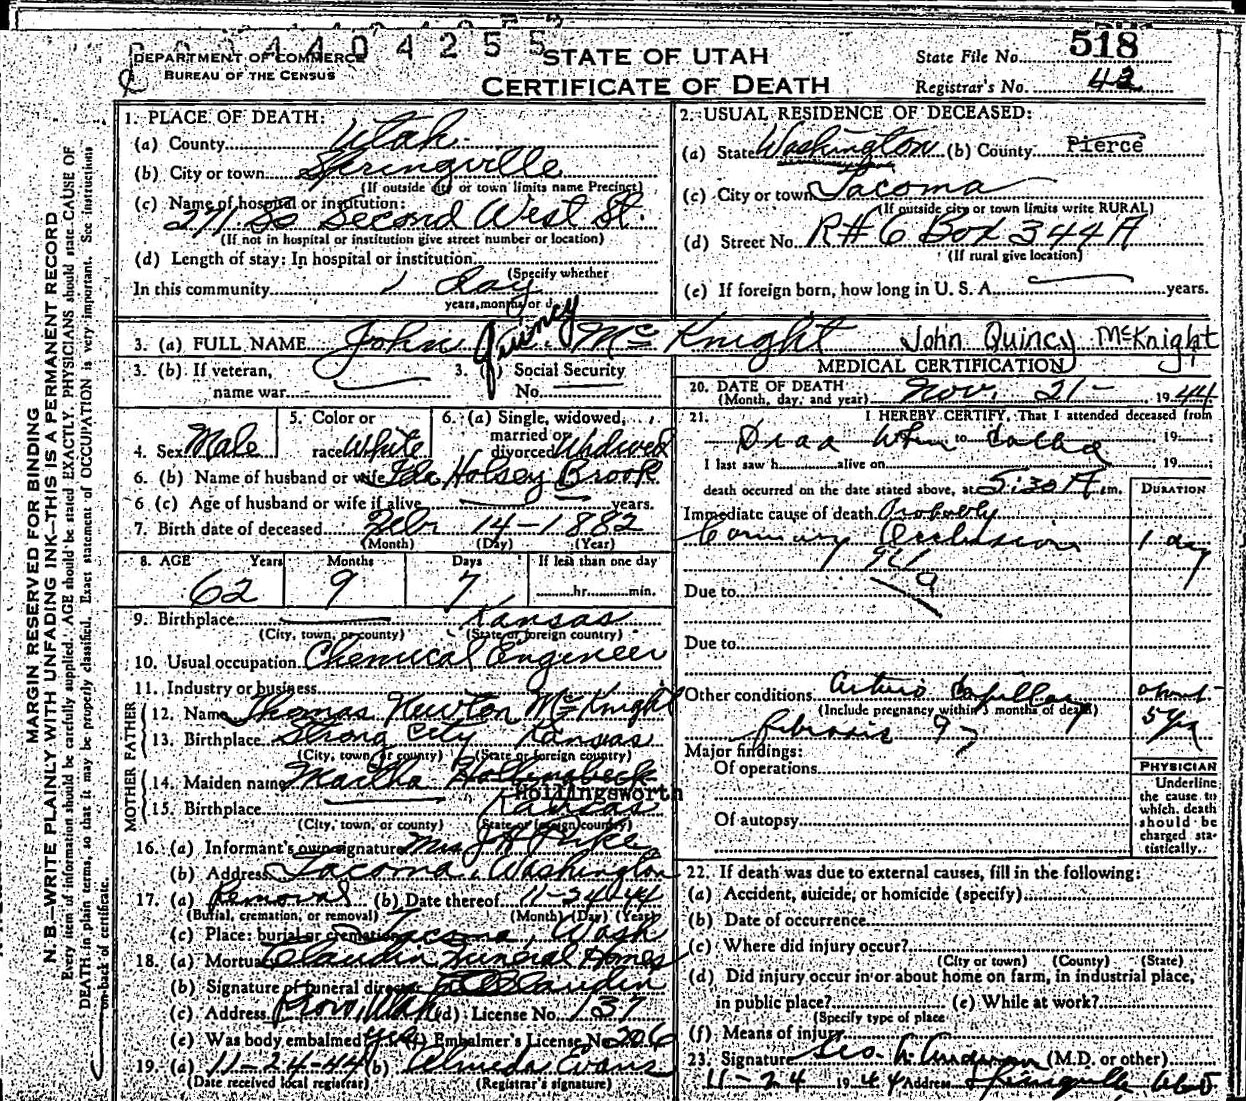 0 4 4 0 4 2 5 5
DEPARTMENT OF COMMERCE
BUREAU OF THE CENSUS
STATE OF UTAH
CERTIFICATE OF DEATH
State File No. 518
Registrar's No. 42
MARGIN RESERVED FOR BINDING
N. B.—WRITE PLAINLY WITH UNFADING INK—THIS IS A PERMANENT RECORD
Every item of information should be carefully supplied. AGE should be stated EXACTLY. PHYSICIANS should state CAUSE OF
DEATH in plain terms, so that it may be properly classified. Exact statement of OCCUPATION is very important. See instructions
on back of certificate.
1. PLACE OF DEATH:
(a) County Utah
(b) City or town Springville
(If outside city or town limits name Precinct)
(c) Name of hospital or institution:
271 So Second West St.
(If not in hospital or institution give street number or location)
(d) Length of stay: In hospital or institution
(Specify whether
In this community 1 day
years, months or
2. USUAL RESIDENCE OF DECEASED:
(a) State Washington (b) County Pierce
(c) City or town Tacoma
(If outside city or town limits write RURAL)
(d) Street No. R# 6 Box 344A
(If rural give location)
(e) If foreign born, how long in U. S. A. years.
3. (a) FULL NAME John Quincy McKnight John Quincy McKnight
3. (b) If veteran,
name war
3. ( ) Social Security
No.
4. Sex Male
5. Color or
race White
6. (a) Single, widowed,
married or
divorced Widowed
6. (b) Name of husband or wife Ida Halsey Brook
6 (c) Age of husband or wife if alive years.
7. Birth date of deceased Febr 14-1882
(Month) (Day) (Year)
8. AGE Years Months Days If less than one day
62 9 7 hr. min.
9. Birthplace Kansas
(City, town, or county) (State or foreign country)
10. Usual occupation Chemical Engineer
11. Industry or business
FATHER
12. Name Thomas Newton McKnight
13. Birthplace Strong City Kansas
(City, town, or county) (State or foreign country)
MOTHER
14. Maiden name Martha Hollingbeck
Hollingsworth
15. Birthplace Kansas
(City, town, or county) (State or foreign country)
16. (a) Informant's own signature Mrs. J H
(b) Address Tacoma, Washington
17. (a) Removal (b) Date thereof 11-24-44
(Burial, cremation, or removal) (Month) (Day) (Year)
(c) Place: burial or cremation Tacoma, Wash
18. (a) Claudin Funeral Homes
(b) Signature of funeral director Claudin
(c) Address Provo, Utah (d) License No. 137
(e) Was body embalmed yes (f) Embalmer's License No. 206
19. (a) 11-24-44 (b) Almeda Evans
(Date received local registrar) (Registrar's signature)
MEDICAL CERTIFICATION
20. DATE OF DEATH
(Month, day, and year) Nov. 21- 1944
21. I HEREBY CERTIFY, That I attended deceased from
Dead when to called 19
I last saw h alive on 19
death occurred on the date stated above, at 5:30 A m.
DURATION
Immediate cause of death Probably
Coronary Occlusion 1 day
Due to
Due to
Other conditions Arterio capillary about
(Include pregnancy within 3 months of death)
fibrosis 97 5 yrs
Major findings:
Of operations
Of autopsy
PHYSICIAN
Underline
the cause to
which death
should be
charged sta-
tistically.
22. If death was due to external causes, fill in the following:
(a) Accident, suicide, or homicide (specify)
(b) Date of occurrence
(c) Where did injury occur?
(City or town) (County) (State)
(d) Did injury occur in or about home on farm, in industrial place,
in public place? (e) While at work?
(Specify type of place
(f) Means of injury
23. Signature Geo. A. Anderson (M.D. or other)
11-24 1944 Address Springville Utah